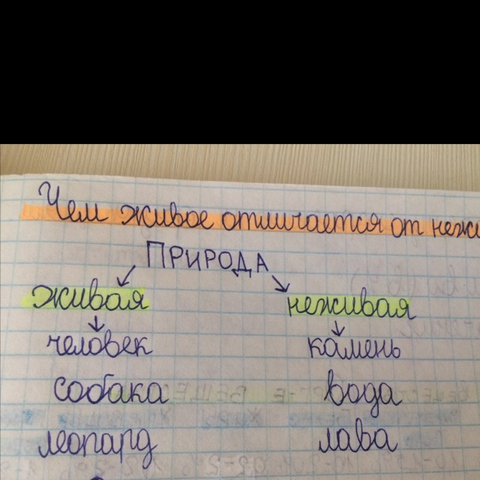 Чем живое отличается от нежи
ПРИРОДА
живая неживая
человек камень
собака вода
леопард лава